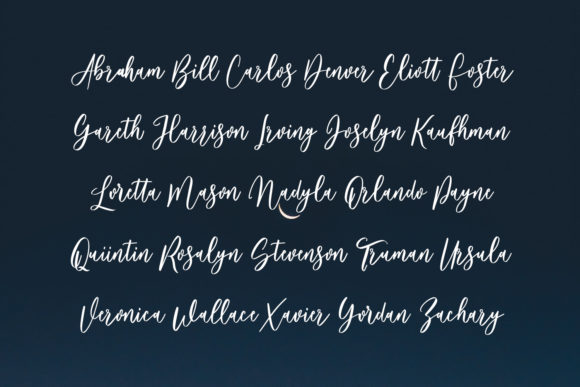 Abraham Bill Carlos Denver Eliott Foster
Gareth Harrison Irving Joselyn Kaufhman
Loretta Mason Nadyla Orlando Payne
Quiintin Rosalyn Stevenson Truman Ursula
Veronica Wallace Xavier Yordan Zachary